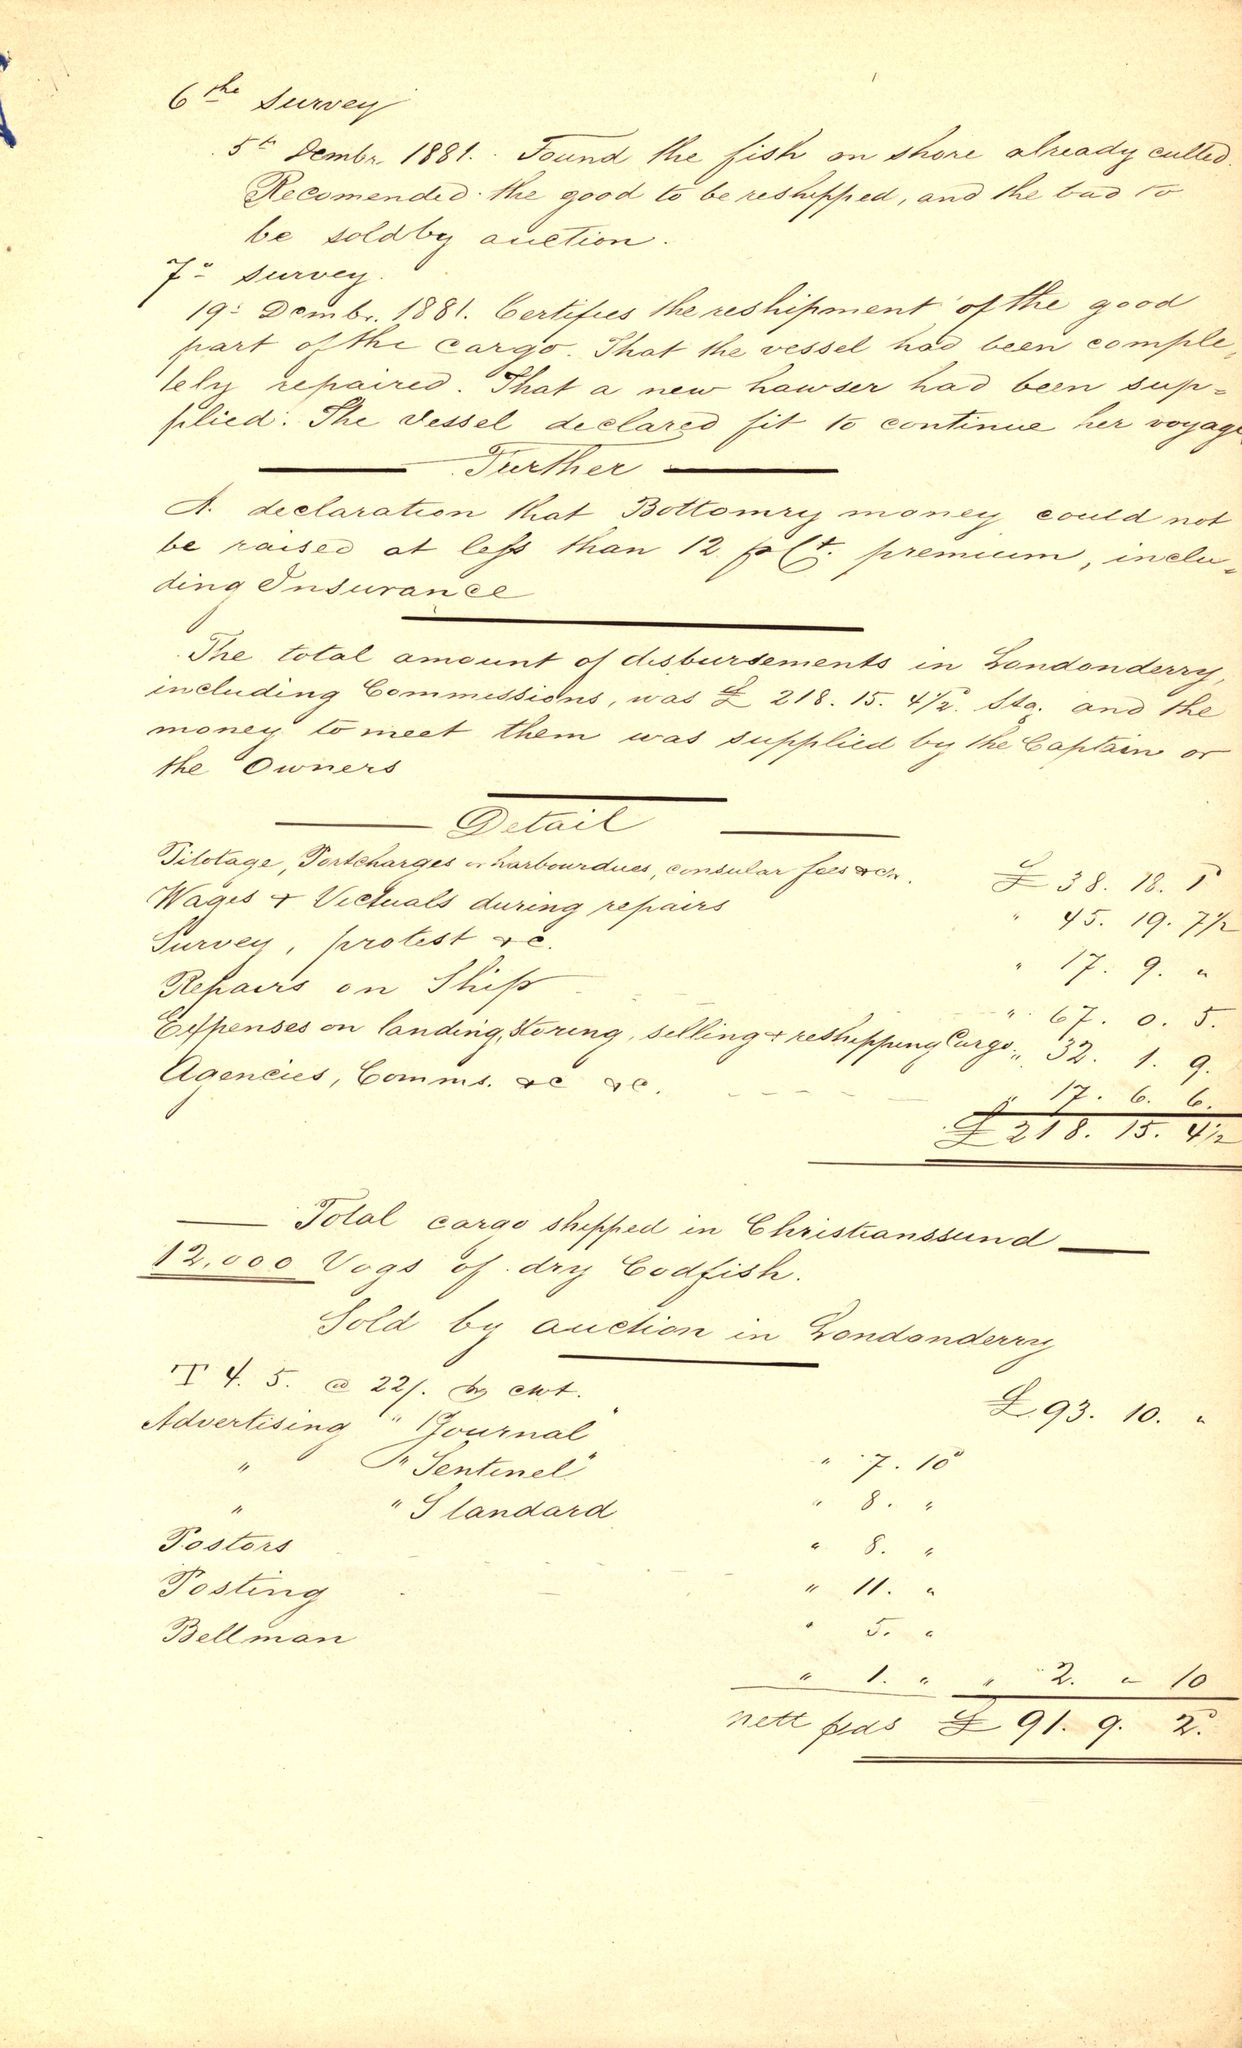 6the Survey
5th Dembr. 1881. Found the fish on shore already culled.
Recomended the good to be reshipped, and the bad to
be sold by auction.
7o Survey.
19: Dcmbr. 1881. Certifies the reshipment of the good
part of the cargo. That the vessel had been comple,
tely repaired. That a new hawser had been sup=
plied. The Vessel declared fit to continue her voyage
Further
A declaration that Bottomry money could not
be raised at less than 12 pCt. premium, inclu,
ding Insurance
The total amount of disbursements in Londonderry,
including Commissions, was £ 218. 15. 4½. Stg. and the
money to meet them was supplied by the Captain or
the Owners
Detail
Pilotage, Portcharges or harbourdues, consular fees &c. £ 38. 18. 1
Wages & Victuals during repairs " 45. 19. 7½
Survey, protest &c. " 17. 9. "
Repairs on Ship " 67. 0. 5.
Expenses on landing, storing, selling & reshipping Cargo " 32. 1. 9.
Agencies, Comms. &c &c. " 17. 6. 6.
£ 218. 15. 4½
Total cargo shipped in Christianssund
12,000 Vogs of dry Codfish.
Sold by auction in Londonderry
T 4. 5. @ 22/. cwt. £ 93. 10. "
Advertising " "Journal"
" "Sentinel" " 7. 10
" "Standard " 8. "
Postors " 8. "
Posting " 11. "
Bellman " 5. "
" 1. " " 2. " 10
nett pcds £ 91. 9. 2.